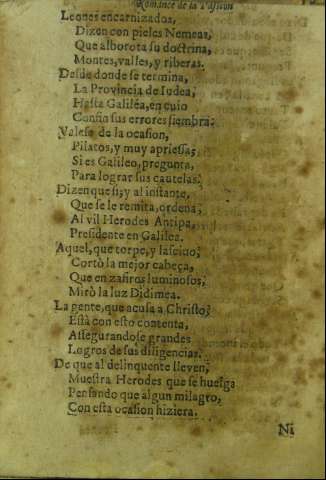 Romance de la Passion
Leones encarnizados,
Dizen con pieles Nemeas,
Que alborota su doctrina,
Montes, valles, y riberas.
Desde donde se termina,
La Provincia de Iudea,
Hasta Galiléa, en cuio
Confin sus errores siembra:
Valese de la ocasion,
Pilatos, y muy apriessa,
Si es Galileo, pregunta,
Para lograr sus cautelas.
Dizen que si; y al instante,
Que se le remita, ordena,
Al vil Herodes Antipa,
Presidente en Galilea.
Aquel, que torpe, y lascivo,
Cortò la mejor cabeça,
Que en zafiros luminosos,
Mirò la luz Didimea.
La gente, que acusa a Christo,
Està con esto contenta,
Assegurandose grandes
Logros de sus diligencias.
De que al delinquente lleven,
Muestra Herodes que se huelga
Pensando que algun milagro,
Con esta ocasion hiziera.
Ni